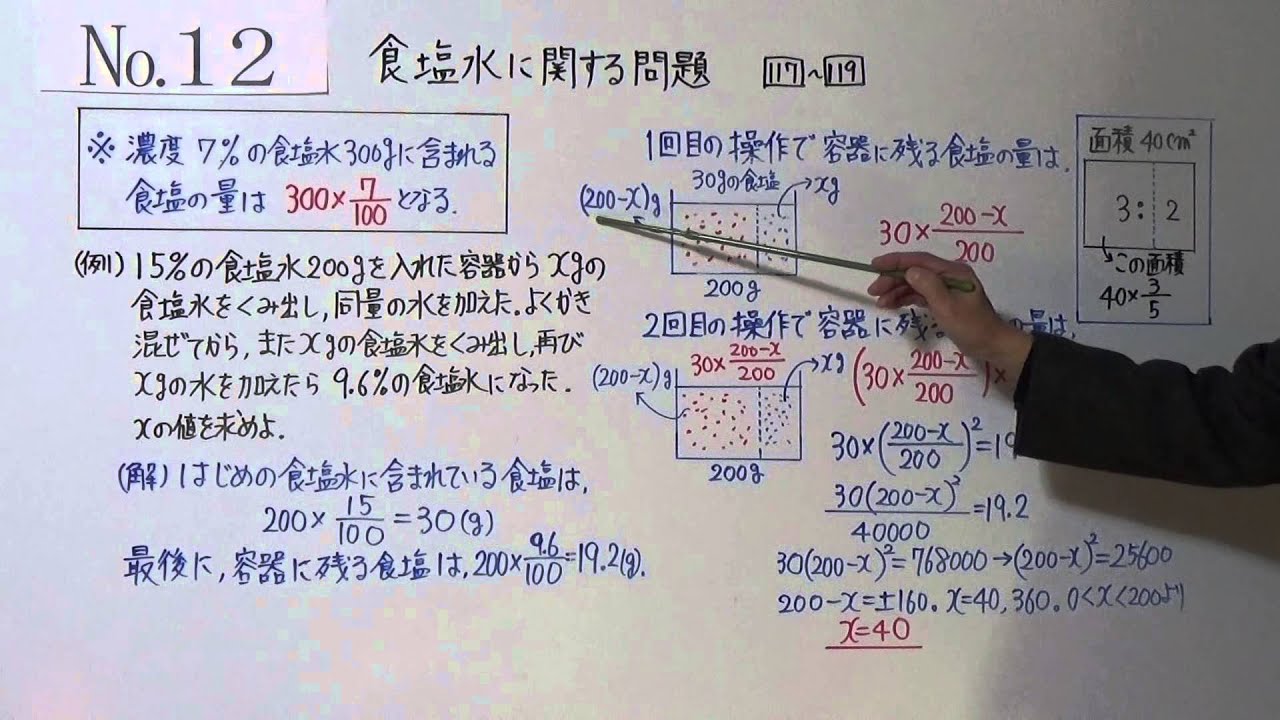 No.12
食塩水に関する問題 117~119
※ 濃度 7%の食塩水300gに含まれる
食塩の量は 300×7/100となる.
(例) 15%の食塩水200gを入れた容器からxgの
食塩水をくみ出し,同量の水を加えた.よくかき
混ぜてから,またxgの食塩水をくみ出し,再び
xgの水を加えたら 9.6%の食塩水になった.
xの値を求めよ.
(解) はじめの食塩水に含まれている食塩は,
200×15/100=30(g)
最後に,容器に残る食塩は,200×9.6/100=19.2(g).
1回目の操作で容器に残る食塩の量は.
30gの食塩
(200-x)g
xg
200g
30×200-x/200
2回目の操作で容器に残る の量は,
30×200-x/200
(200-x)g
xg
200g
(30×200-x/200)×
30×(200-x/200)²=19
30(200-x)²/40000=19.2
30(200-x)²=768000→(200-x)²=25600
200-x=±160。x=40,360。0<x<200より
x=40
面積40cm²
3:2
この面積
40×3/5